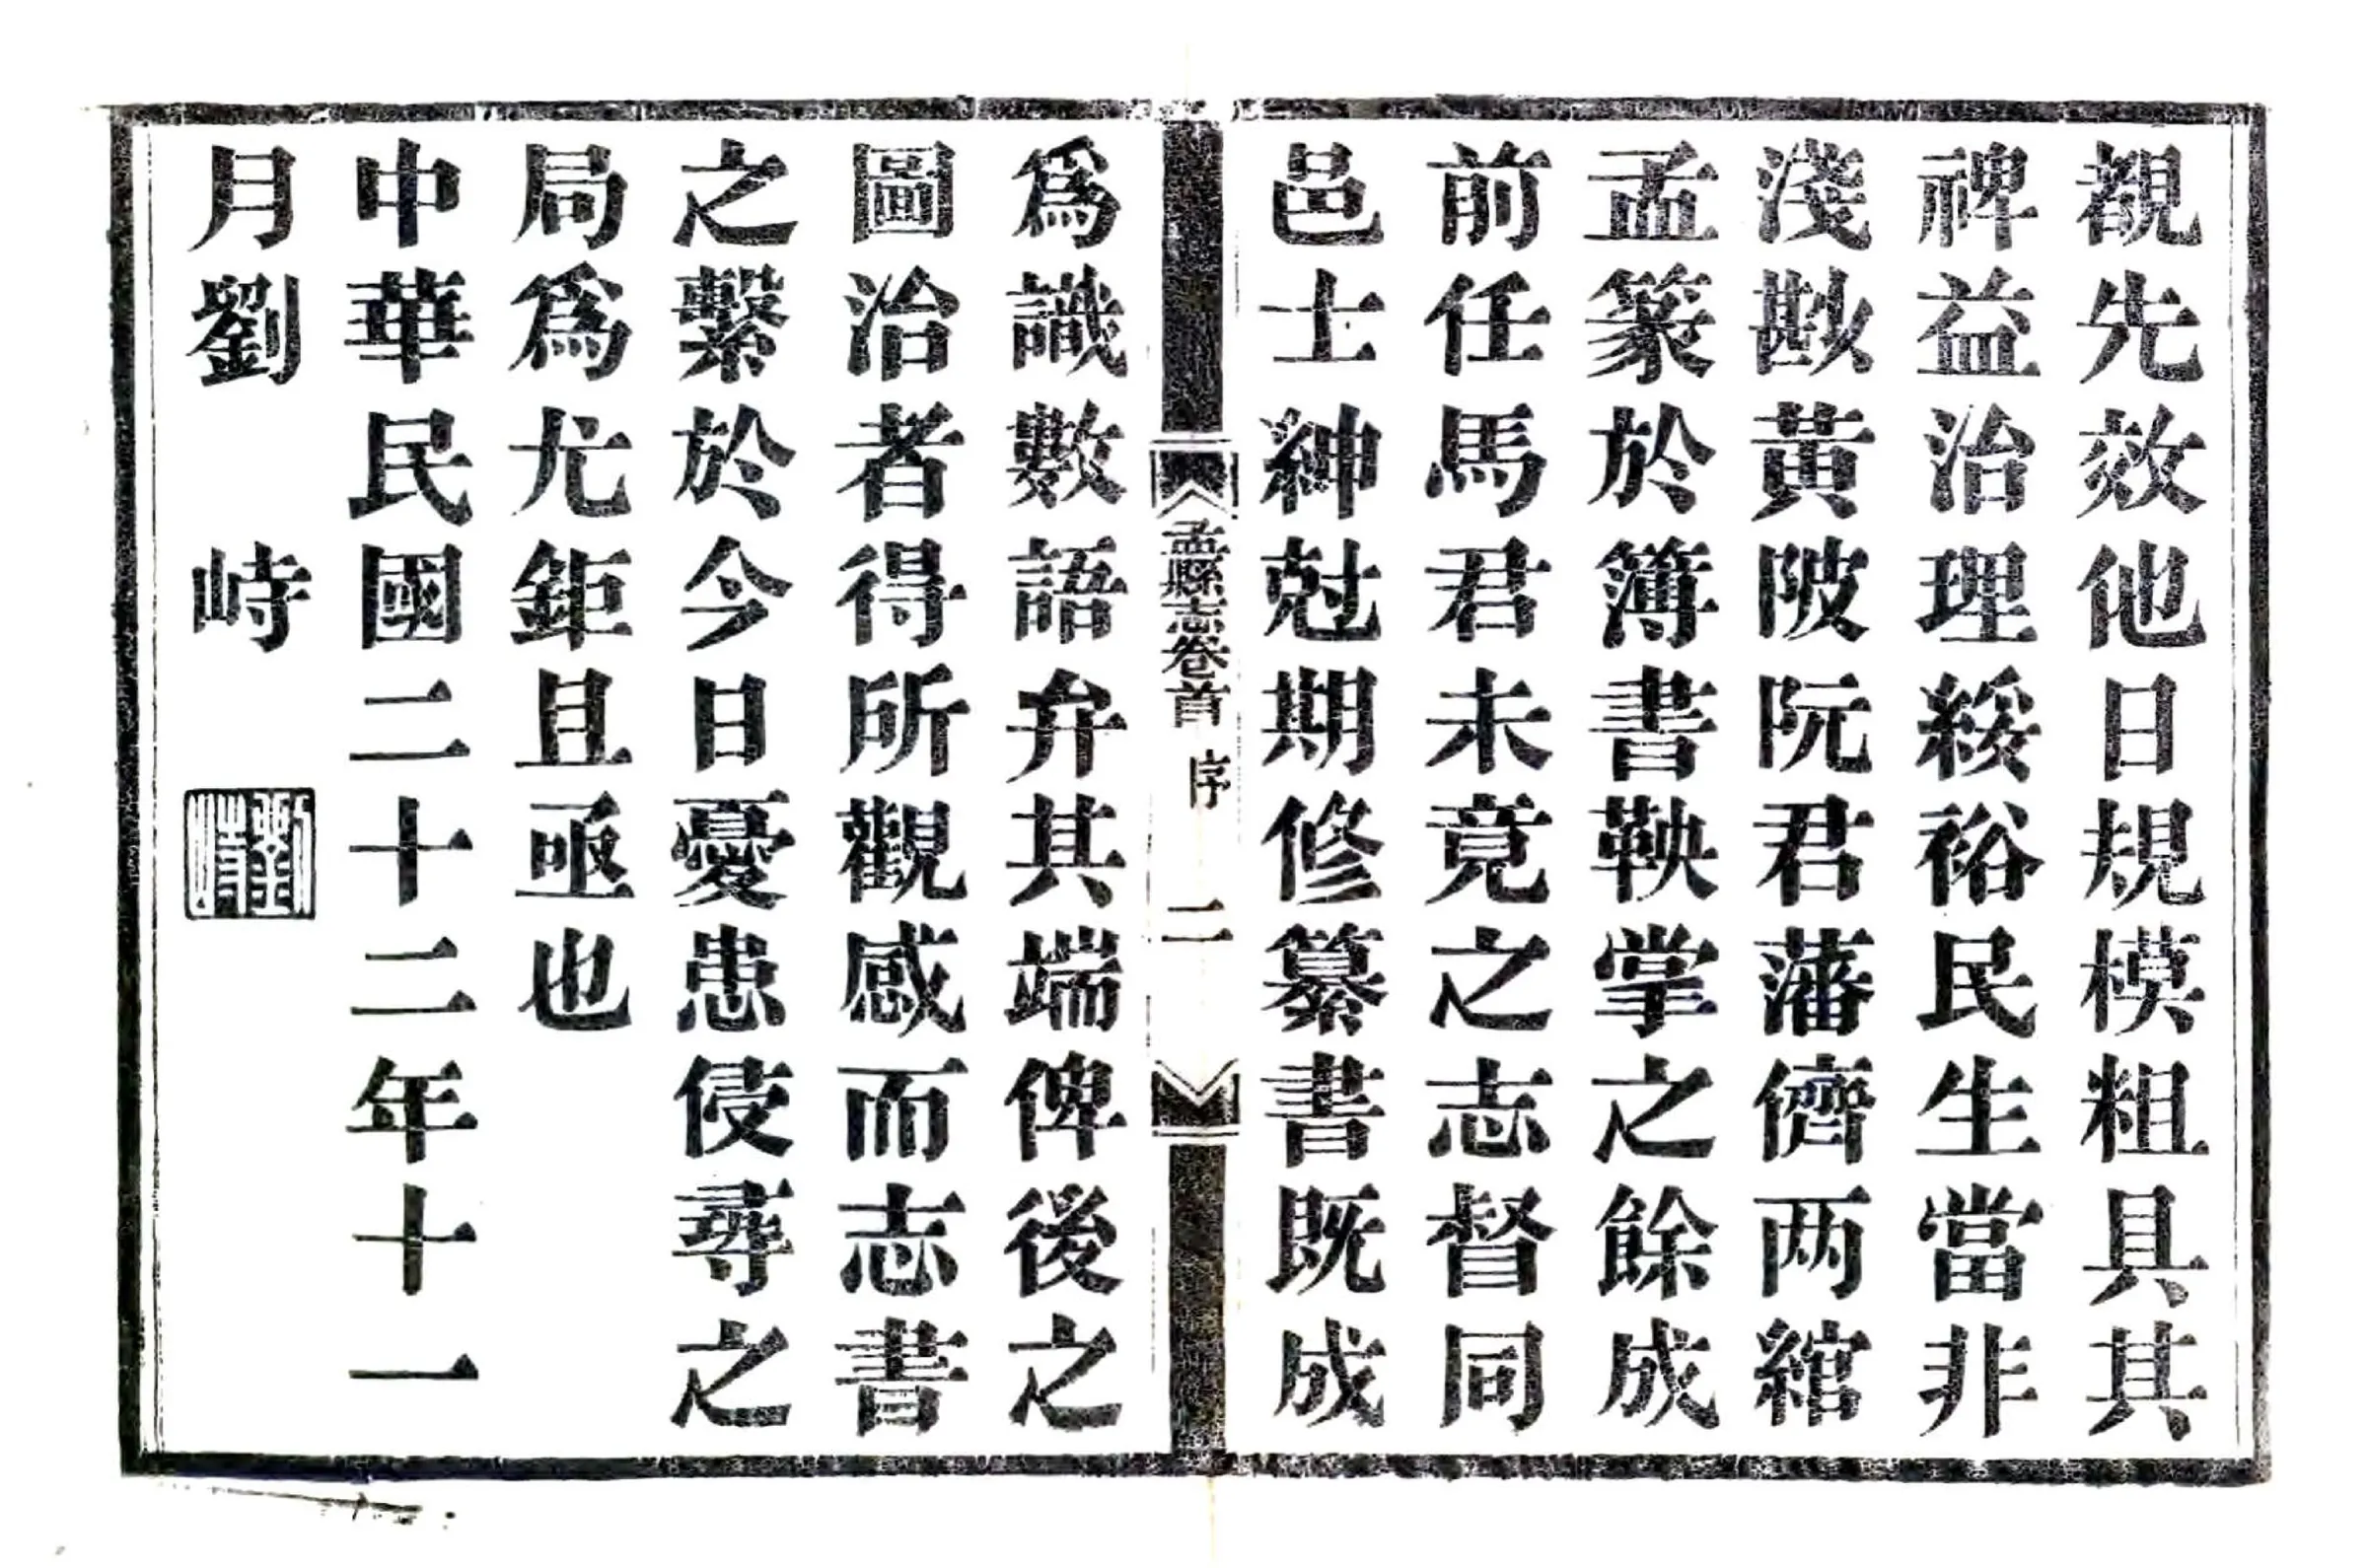 覩先效他日規模粗具其
禆益治理綏裕民生當非
淺尠黃陂阮君藩儕两綰
孟篆於簿書鞅掌之餘成
前任馬君未竟之志督同
邑士紳尅期修纂書既成
孟縣志卷首 序 二
爲識數語弁其端俾後之
圖治者得所觀感而志書
之繫於今日憂患侵尋之
局爲尤鉅且亟也
中華民國二十二年十一
月劉 峙
劉峙